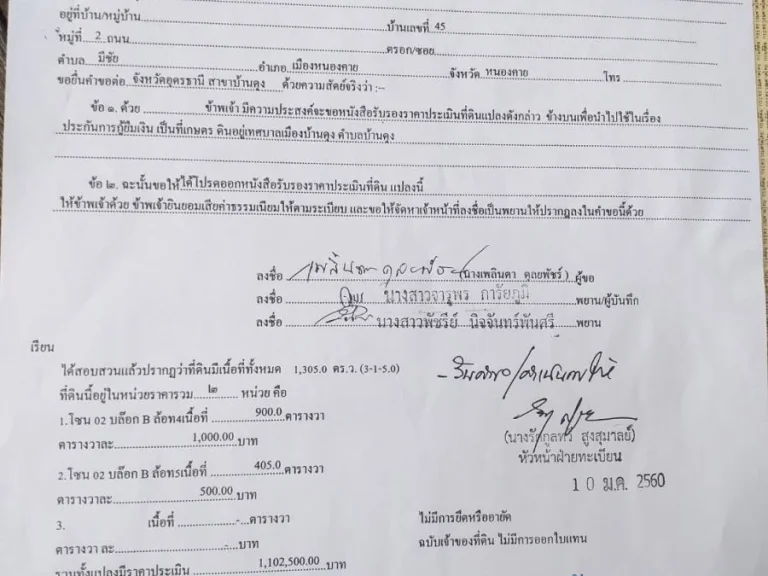 อยู่ที่บ้าน/หมู่บ้าน บ้านเลขที่ 45
หมู่ที่ 2 ถนน ตรอก/ซอย
ตำบล มีชัย อำเภอ เมืองหนองคาย จังหวัด หนองคาย โทร
ขอยื่นคำขอต่อ จังหวัดอุดรธานี สาขาบ้านดุง ด้วยความสัตย์จริงว่า :-
ข้อ ๑. ด้วย ข้าพเจ้า มีความประสงค์จะขอหนังสือรับรองราคาประเมินที่ดินแปลงดังกล่าว ข้างบนเพื่อนำไปใช้ในเรื่อง
ประกันการกู้ยืมเงิน เป็นที่เกษตร ดินอยู่เทศบาลเมืองบ้านดุง ตำบลบ้านดุง
ข้อ ๒. ฉะนั้นขอให้ได้โปรดออกหนังสือรับรองราคาประเมินที่ดิน แปลงนี้
ให้ข้าพเจ้าด้วย ข้าพเจ้ายินยอมเสียค่าธรรมเนียมให้ตามระเบียบ และขอให้จัดหาเจ้าหน้าที่ลงชื่อเป็นพยานให้ปรากฏลงในคำขอนี้ด้วย
ลงชื่อ (นางเพลินดา ดุลยพัชร์) ผู้ขอ
ลงชื่อ นางสาวจารุพร ภารัยภูมิ พยาน/ผู้บันทึก
ลงชื่อ นางสาวพัชรีย์ นิจจันทร์พันศรี พยาน
เรียน
ได้สอบสวนแล้วปรากฏว่าที่ดินมีเนื้อที่ทั้งหมด 1,305.0 ตร.ว. (3-1-5.0)
ที่ดินนี้อยู่ในหน่วยราคารวม ๒ หน่วย คือ
1.โซน 02 บล๊อก B ล้อท4เนื้อที่ 900.0 ตารางวา
ตารางวาละ 1,000.00 บาท
(นางรัตกูลทร์ สูงสุมาลย์)
หัวหน้าฝ่ายทะเบียน
10 ม.ค. 2560
2.โซน 02 บล๊อก B ล้อท5เนื้อที่ 405.0 ตารางวา
ตารางวาละ 500.00 บาท
3. เนื้อที่ - ตารางวา
ตารางวา ละ - บาท
ไม่มีการยึดหรืออายัด
ฉบับเจ้าของที่ดิน ไม่มีการออกใบแทน
รวมทั้งแปลงมีราคาประเมิน 1,102,500.00 บาท